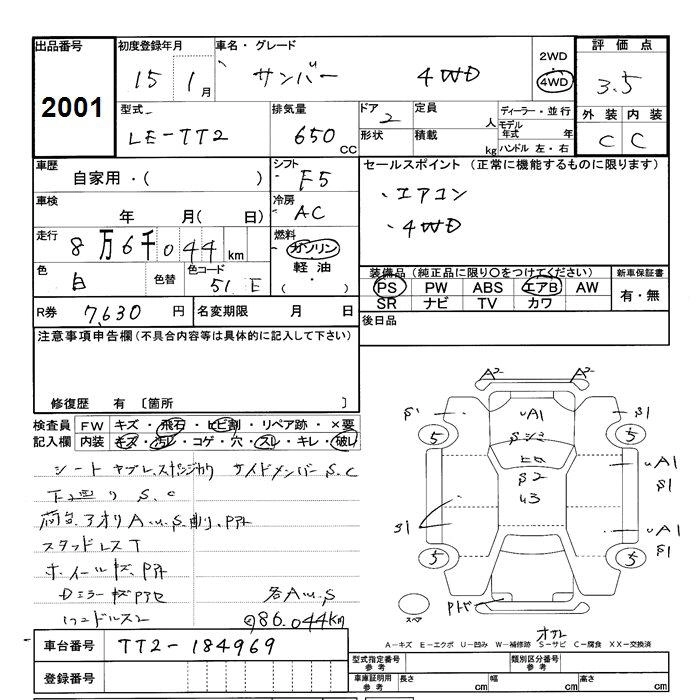 出品番号
2001
初度登録年月
15 1 月
車名・グレード
サンバー 4WD
2WD
4WD
評価点
3.5
型式
LE-TT2
排気量
650 CC
ドア
2
定員
人
形状
積載
kg
ディーラー・並行
モデル年式 年
ハンドル 左・右
外装 内装
C C
車歴
自家用・( )
シフト
F5
セールスポイント (正常に機能するものに限ります)
・エアコン
・4WD
車検
年 月( 日)
冷房
AC
走行
8万6千044km
燃料
ガソリン
軽油
( ・ )
色
白
色替
色コード
51E
装備品 (純正品に限り○をつけてください)
PS PW ABS エアB AW
SR ナビ TV カワ
新車保証書
有・無
R券 7,630 円
名変期限 月 日
後日品
注意事項申告欄(不具合内容等は具体的に記入して下さい)
修復歴 有 〔箇所 〕
検査員記入欄
FW キズ・飛石・ヒビ割・リペア跡・×要
内装 キズ・汚レ・コゲ・穴・スレ・キレ・破レ
シート ヤブレ、スポンジカケ サイドメンバーS.C
下廻りS.C
荷台、アオリA.U.S
スタッドレスT
ホイールキズ
Dミラーキズ
各A.U.S
86.044km
A2 A2
UA1
S1
5 5
S2
U3
UA1
S1
UA1
S1
S1
5 5
スペア
A-キズ E-エクボ U-凹み W-補修跡 S-サビ C-腐食 XX-交換済
車台番号 TT2-184969
登録番号
型式指定番号 参考
類別区分番号 参考
車庫証明用 参考
長さ cm
幅 cm
高さ cm